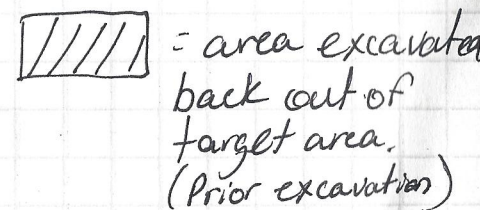 = area excavated
back out of
target area.
(Prior excavation)